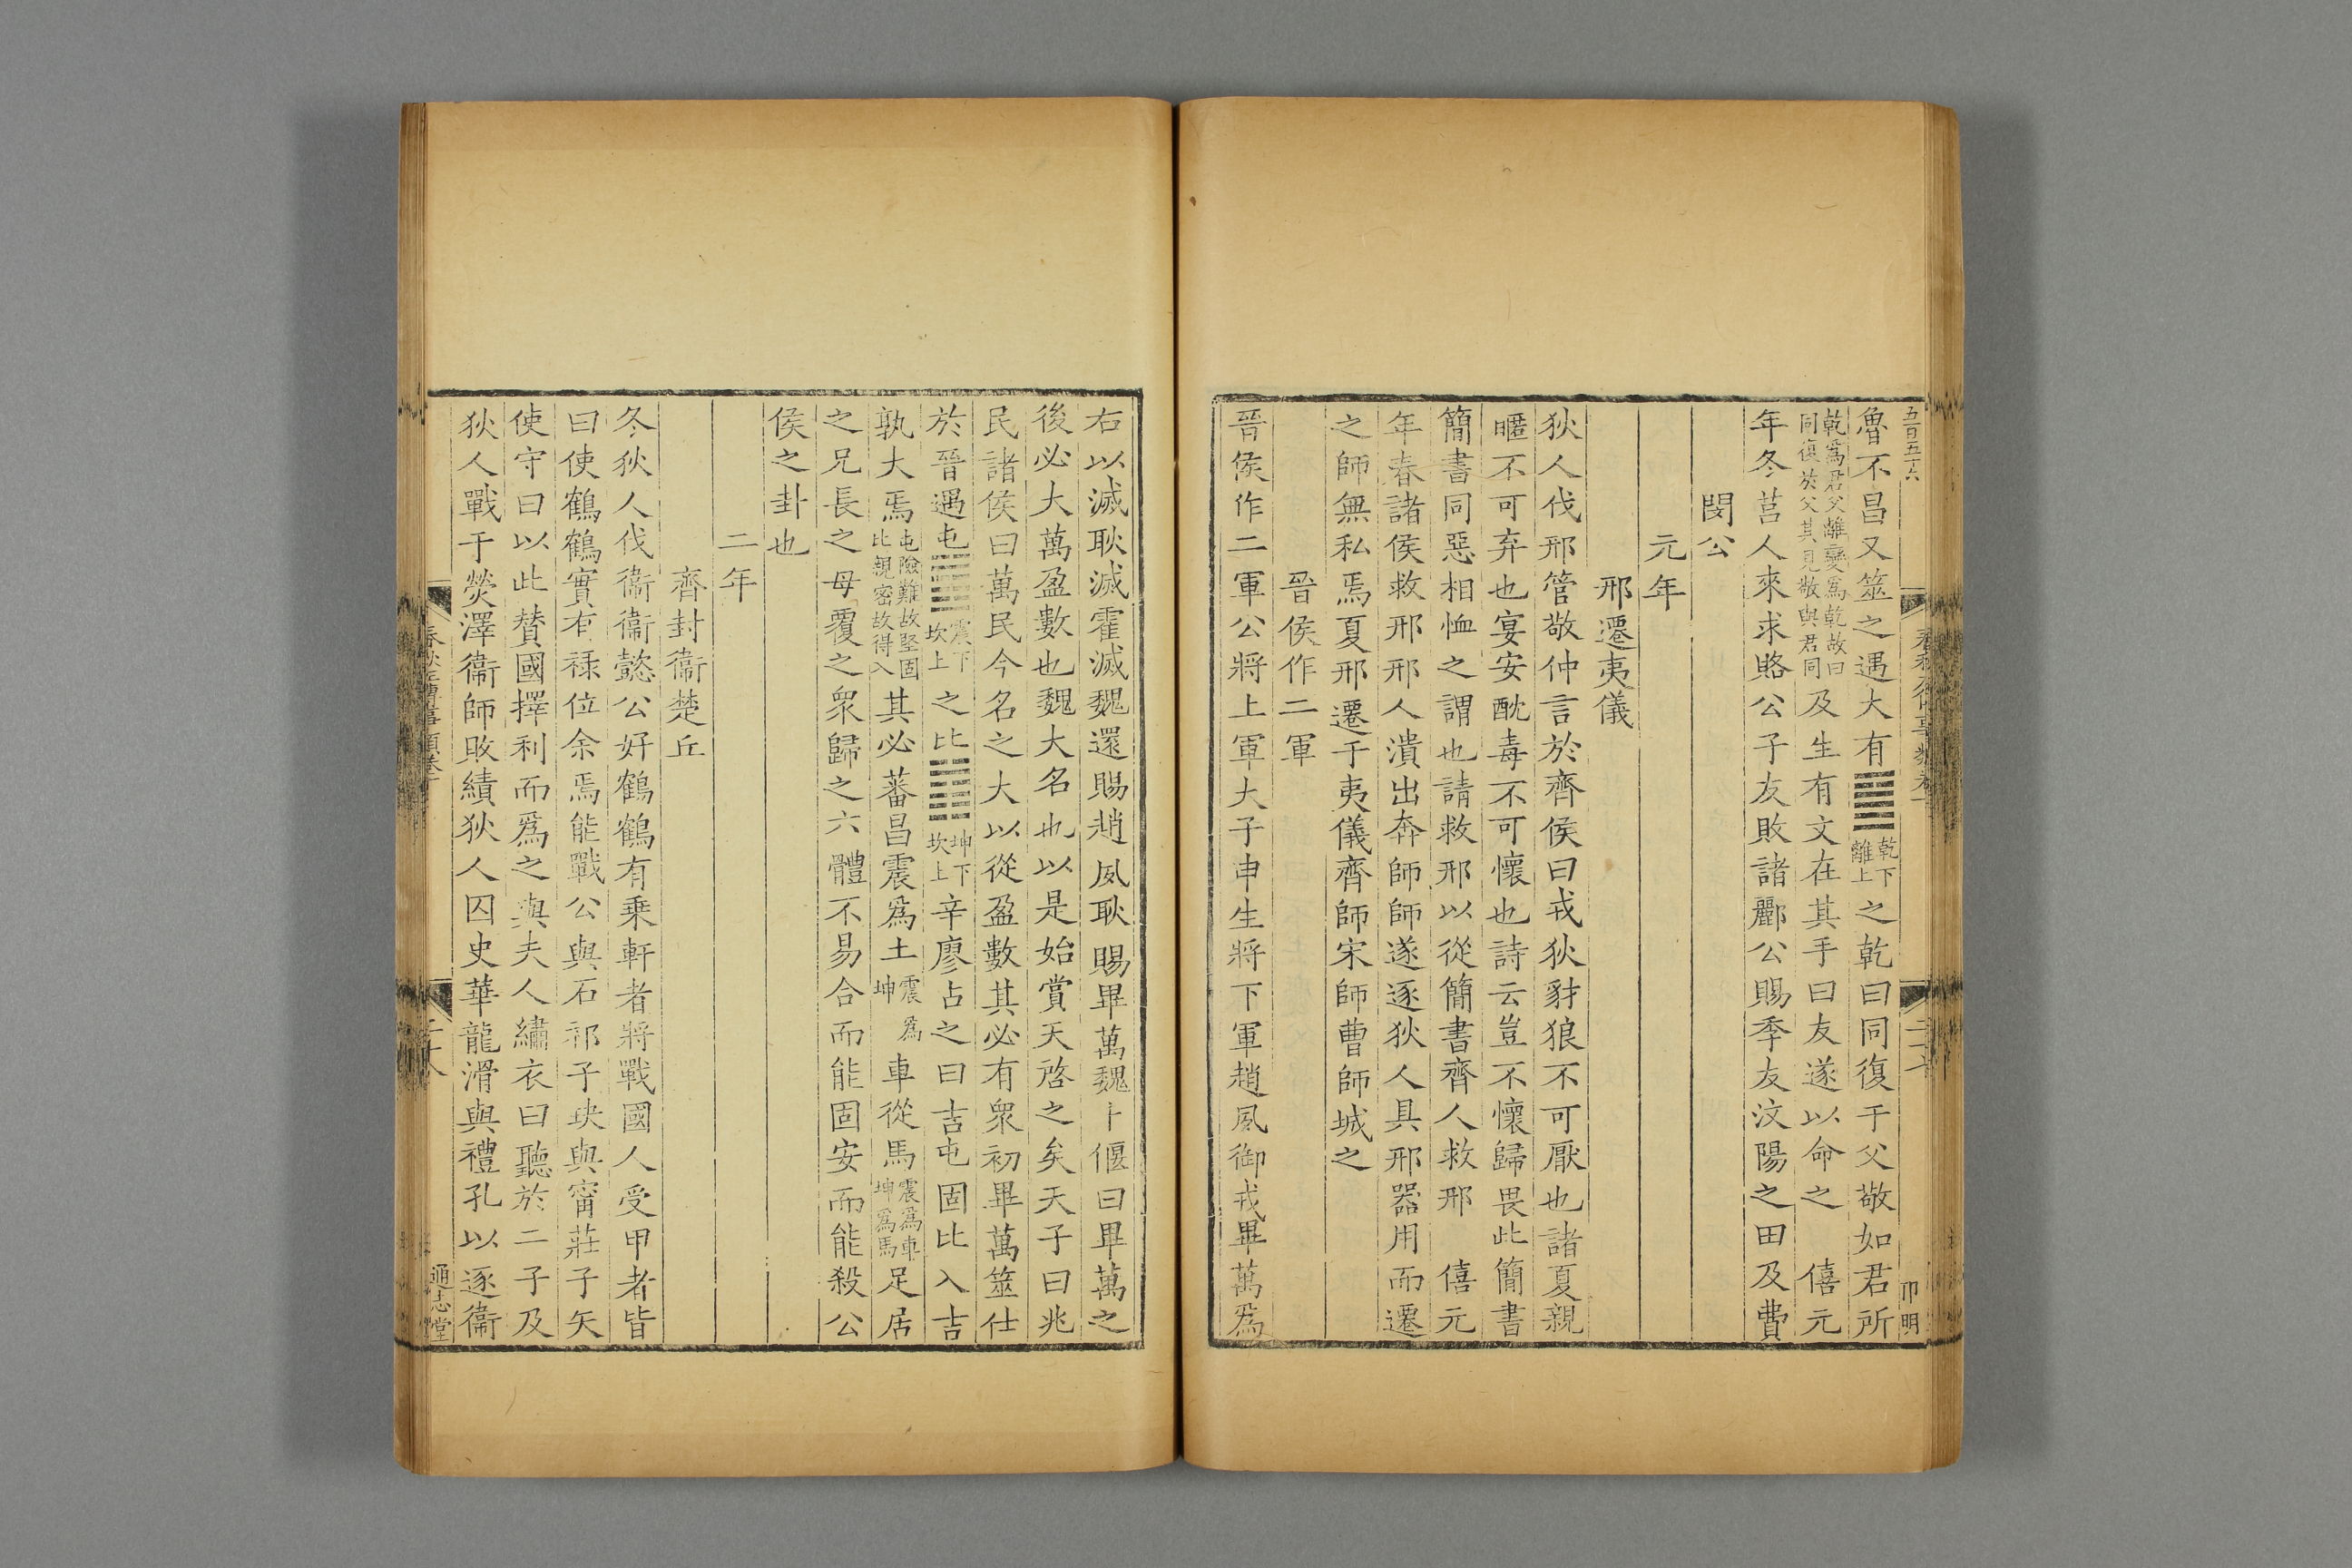 五百五十六
卬明
魯不昌又筮之遇大有䷍乾下離上之乾曰同復于父敬如君所
乾爲君父離變爲乾故曰同復於父其見敬與君同及生有文在其手曰友遂以命之　僖元
年冬莒人來求賂公子友敗諸酈公賜季友汶陽之田及費
閔公
元年
邢遷夷儀
狄人伐邢管敬仲言於齊侯曰戎狄豺狼不可厭也諸夏親
暱不可弃也宴安酖毒不可懷也詩云豈不懷歸畏此簡書
簡書同惡相恤之謂也請救邢以從簡書齊人救邢　僖元
年春諸侯救邢邢人潰出奔師師遂逐狄人具邢器用而遷
之師無私焉夏邢遷于夷儀齊師宋師曹師城之
晉侯作二軍
晉侯作二軍公將上軍大子申生將下軍趙夙御戎畢萬爲
右以滅耿滅霍滅魏還賜趙夙耿賜畢萬魏卜偃曰畢萬之
後必大萬盈數也魏大名也以是始賞天啓之矣天子曰兆
民諸侯曰萬民今名之大以從盈數其必有衆初畢萬筮仕
於晉遇屯䷂震下坎上之比䷇坤下坎上辛廖占之曰吉屯固比入吉
孰大焉屯險難故堅固比親密故得入其必蕃昌震爲土震爲坤車從馬震爲車坤爲馬足居
之兄長之母覆之衆歸之六體不易合而能固安而能殺公
侯之卦也
二年
齊封衞楚丘
冬狄人伐衞衞懿公好鶴鶴有乗軒者將戰國人受甲者皆
曰使鶴鶴實有祿位余焉能戰公與石祁子玦與甯莊子矢
使守曰以此贊國擇利而爲之與夫人繡衣曰聽於二子及
狄人戰于熒澤衞師敗績狄人囚史華龍滑與禮孔以逐衞
通志堂